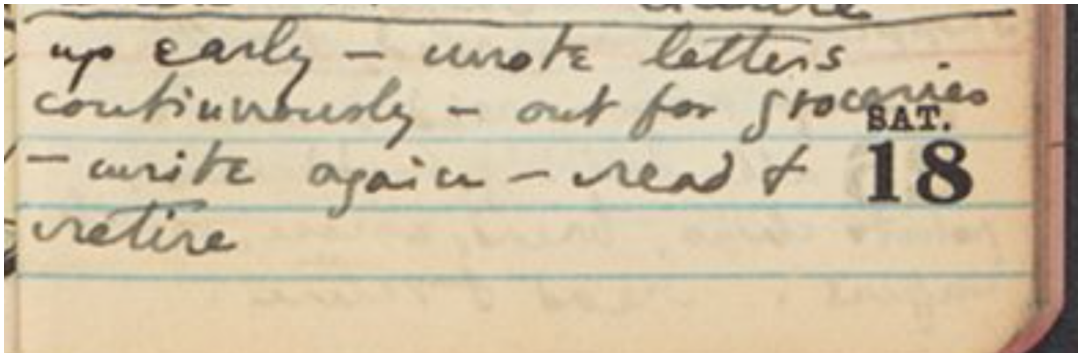 up early – wrote letters
continuously – out for groceries
SAT.
– write again – read &
18
retire